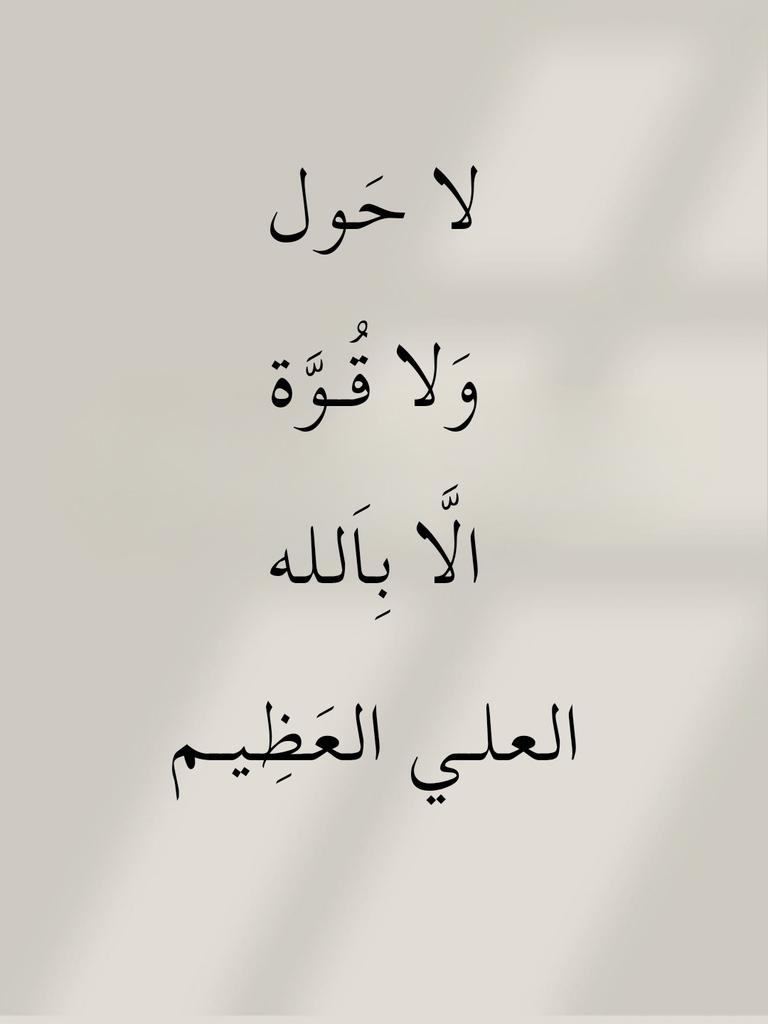 لا حَول
وَلا قُوَّة
الَّا بِاَلله
العلي العَظِيم